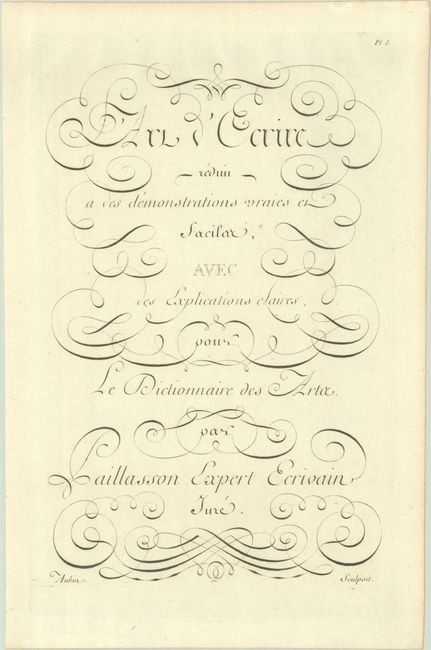 Pl. I.
L'Art d'Ecrire
réduit
a des démonstrations vraies et
faciles,
AVEC
des Explications claires,
pour
Le Dictionnaire des Arts.
par
Paillasson Expert Ecrivain
Juré.
Aubin.
Sculpsit.